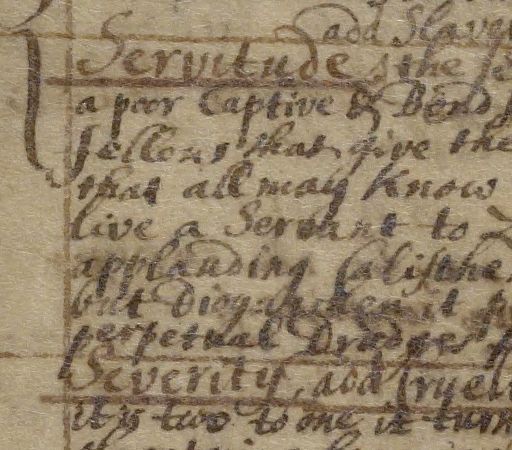 add Slave
Servitude, the
a poor Captive & Bond
fellows that give the
that all may know
live a Servant to
applauding Calisthe
but Diog
perpetual Drudges
Severity, add Cruel
it is two to one it turn